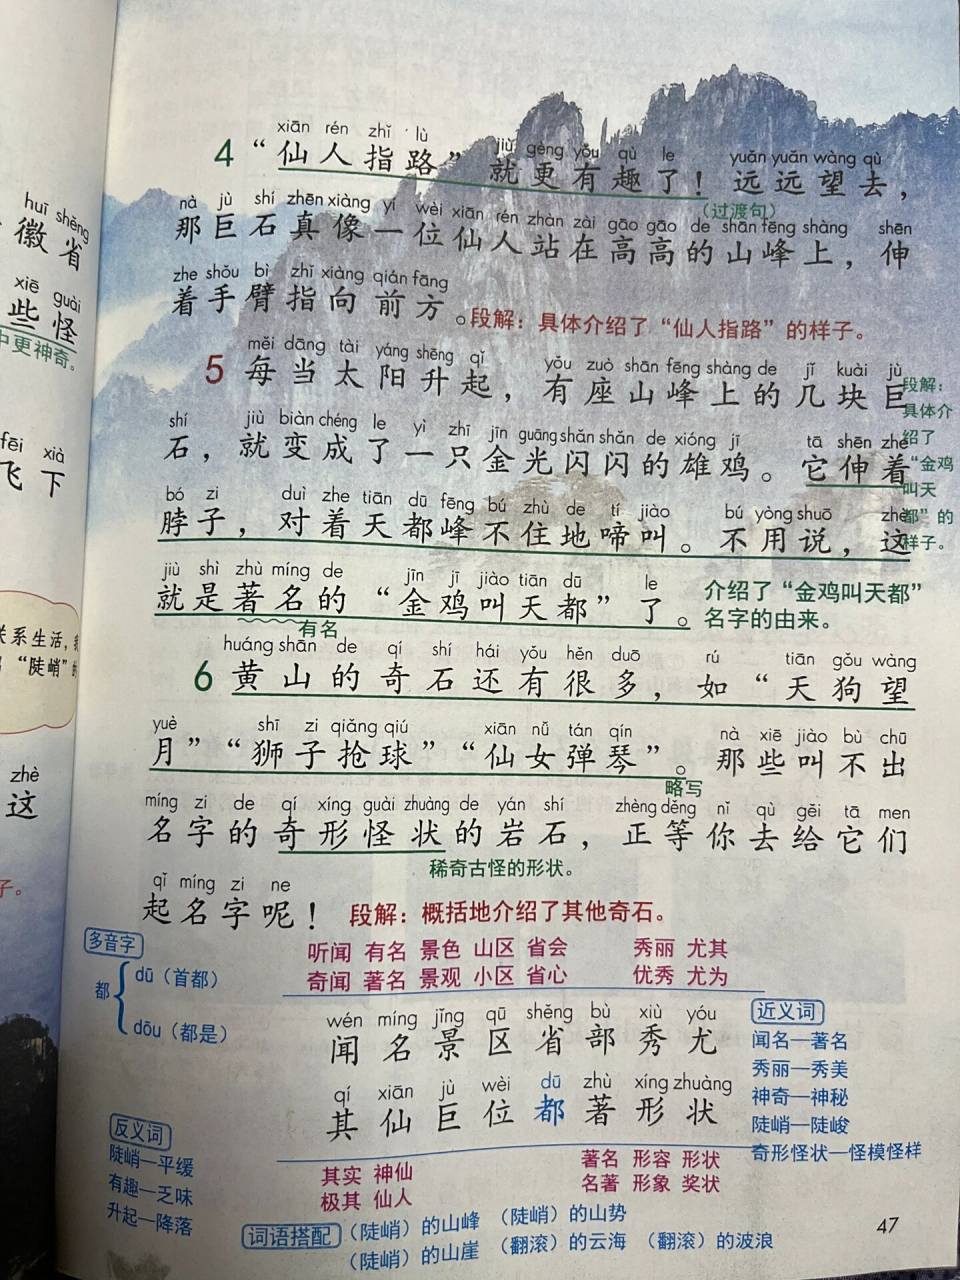 huī shěng
徽省
xiē guài
些怪
中更神奇。
fēi xià
飞下
关系生活,
“陡峭”
zhè
这
子。
xiān rén zhǐ lù jiù gèng yǒu qù le yuǎn yuǎn wàng qù
4 “仙人指路”就更有趣了!远远望去,
(过渡句)
nà jù shí zhēn xiàng yí wèi xiān rén zhàn zài gāo gāo de shān fēng shàng shēn
那巨石真像一位仙人站在高高的山峰上,伸
zhe shǒu bì zhǐ xiàng qián fāng
着手臂指向前方。段解:具体介绍了“仙人指路”的样子。
měi dāng tài yáng shēng qǐ yǒu zuò shān fēng shàng de jǐ kuài jù
5 每当太阳升起,有座山峰上的几块巨
段解:
具体介
绍了
“金鸡
叫天
都”的
样子。
shí jiù biàn chéng le yì zhī jīn guāng shǎn shǎn de xióng jī tā shēn zhe
石,就变成了一只金光闪闪的雄鸡。它伸着
bó zi duì zhe tiān dū fēng bú zhù de tí jiào bú yòng shuō zhè
脖子,对着天都峰不住地啼叫。不用说,这
jiù shì zhù míng de jīn jī jiào tiān dū le
就是著名的“金鸡叫天都”了。
有名
介绍了“金鸡叫天都”
名字的由来。
huáng shān de qí shí hái yǒu hěn duō rú tiān gǒu wàng
6 黄山的奇石还有很多,如“天狗望
yuè shī zi qiǎng qiú xiān nǚ tán qín nà xiē jiào bù chū
月”“狮子抢球”“仙女弹琴”。那些叫不出
略写
míng zi de qí xíng guài zhuàng de yán shí zhèng děng nǐ qù gěi tā men
名字的奇形怪状的岩石,正等你去给它们
稀奇古怪的形状。
qǐ míng zi ne
起名字呢!段解:概括地介绍了其他奇石。
多音字
都
dū(首都)
dōu(都是)
听闻 有名 景色 山区 省会 秀丽 尤其
奇闻 著名 景观 小区 省心 优秀 尤为
wén míng jǐng qū shěng bù xiù yóu
闻名景区省部秀尤
qí xiān jù wèi dū zhù xíng zhuàng
其仙巨位都著形状
其实 神仙 著名 形容 形状
极其 仙人 名著 形象 奖状
近义词
闻名—著名
秀丽—秀美
神奇—神秘
陡峭—陡峻
奇形怪状—怪模怪样
反义词
陡峭—平缓
有趣—乏味
升起—降落
词语搭配
(陡峭)的山峰 (陡峭)的山势
(陡峭)的山崖 (翻滚)的云海 (翻滚)的波浪
47